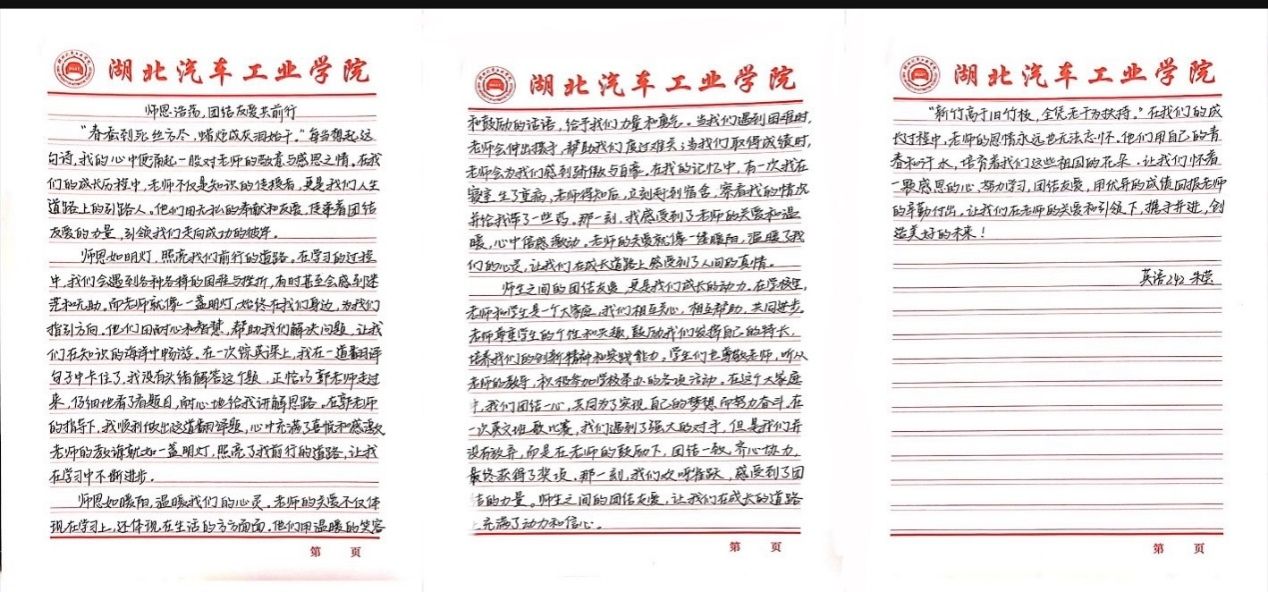 湖北汽车工业学院
师恩浩荡，团结友爱共前行
“春蚕到死丝方尽，蜡炬成灰泪始干。”每当想起这
句诗，我的心中便涌起一股对老师的敬意与感恩之情。在我
们的成长历程中，老师不仅是知识的传授者，更是我们人生
道路上的引路人。他们用无私的奉献和友爱，传承着团结
友爱的力量，引领我们走向成功的彼岸。
师恩如明灯，照亮我们前行的道路。在学习的过程
中，我们会遇到各种各样的困难与挫折，有时甚至会感到迷
茫和无助。而老师就像一盏明灯，始终在我们身边，为我们
指引方向。他们用耐心和智慧，帮助我们解决问题，让我
们在知识的海洋中畅游。在一次综英课上，我在一道翻译
句子中卡住了，我没有头绪解答这个题，正恰巧郭老师走过
来，仔细地看了看题目，耐心地给我讲解思路。在郭老师
的指导下，我顺利做出这道翻译题，心中充满了喜悦和感激。
老师的教诲就如一盏明灯，照亮了我前行的道路，让我
在学习中不断进步。
师恩如暖阳，温暖我们的心灵。老师的关爱不仅体
现在学习上，还体现在生活的方方面面。他们用温暖的笑容
第 页
湖北汽车工业学院
和鼓励的话语，给予我们力量和勇气。当我们遇到困难时，
老师会伸出援手，帮助我们度过难关；当我们取得成绩时，
老师会为我们感到骄傲与自豪。在我的记忆中，有一次我在
寝室生了重病，老师得知后，立刻来到宿舍，察看我的情况
并给我带了一些药。那一刻，我感受到了老师的关爱和温
暖，心中倍感激动。老师的关爱就像一缕暖阳，温暖了我
们的心灵，让我们在成长道路上感受到了人间的真情。
师生之间的团结友爱，更是我们成长的动力。在学校里，
老师和学生是一个大家庭，我们相互关心，相互帮助，共同进步。
老师尊重学生的个性和兴趣，鼓励我们发挥自己的特长，
培养我们的创新精神和实践能力。学生们也尊敬老师，听从
老师的教导，积极参加学校举办的各项活动。在这个大家庭
中，我们团结一心，共同为了实现自己的梦想而努力奋斗。在
一次英文班歌比赛，我们遇到了强大的对手，但是我们并
没有放弃，而是在老师的鼓励下，团结一致，齐心协力，
最终获得了奖项。那一刻，我们欢呼雀跃，感受到了团
结的力量。师生之间的团结友爱，让我们在成长的道路
上充满了动力和信心。
第 页
湖北汽车工业学院
“新竹高于旧竹枝，全凭老干为扶持。”在我们的成
长过程中，老师的恩情永远也无法忘怀。他们用自己的青
春和汗水，培育着我们这些祖国的花朵。让我们怀着
一颗感恩的心，努力学习，团结友爱，用优异的成绩回报老师
的辛勤付出。让我们在老师的关爱和引领下，携手并进，创
造美好的未来！
英语242 朱荣
第 页